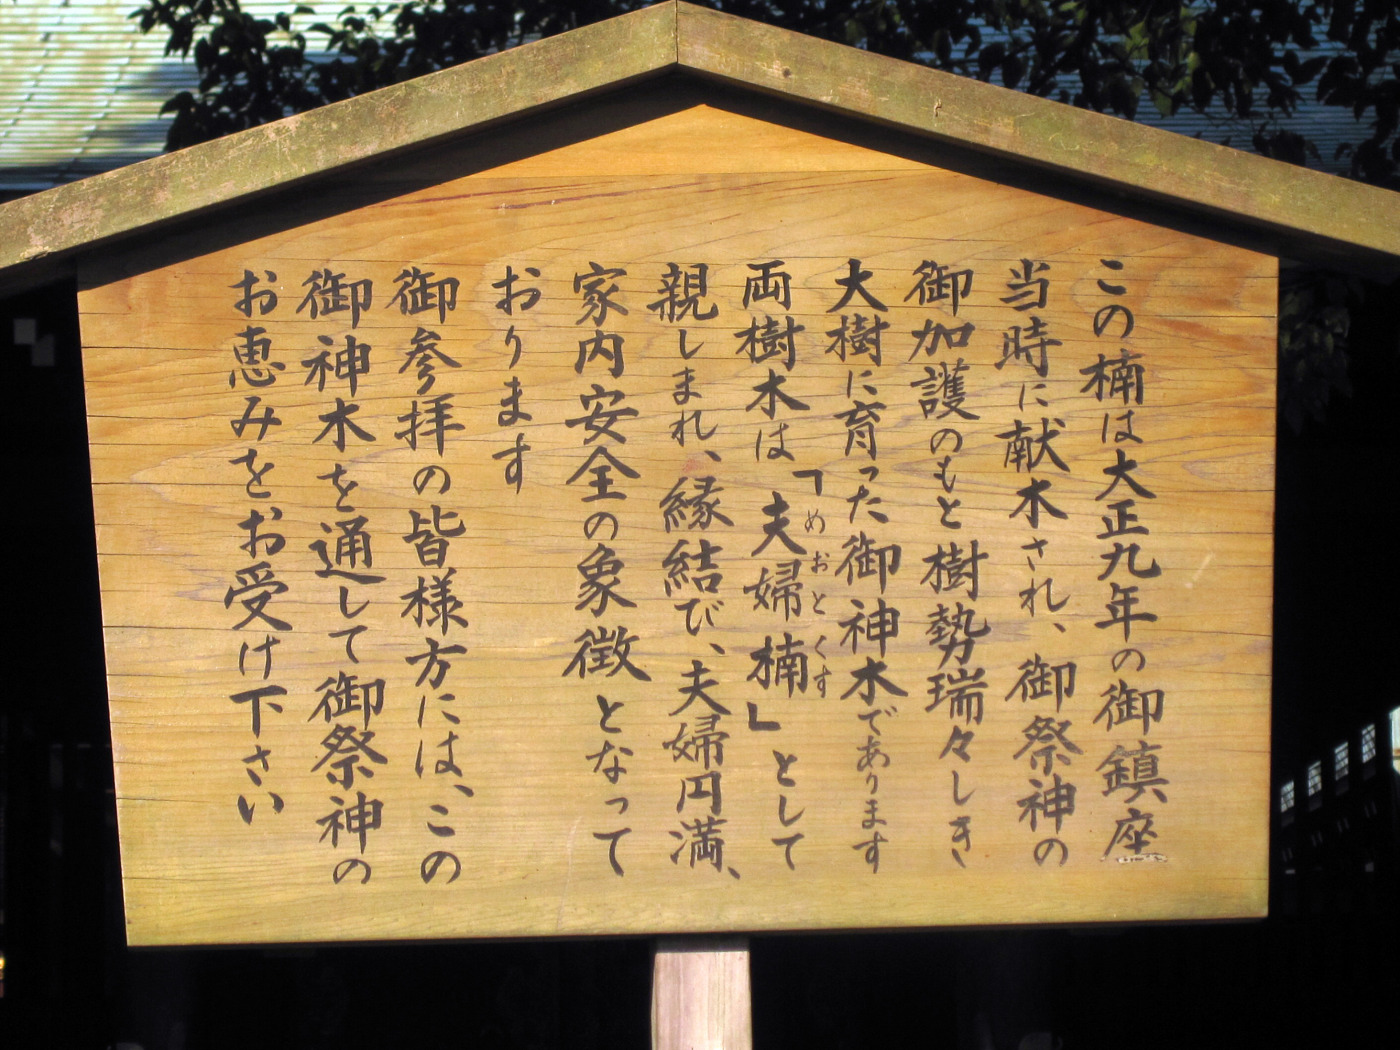 この楠は大正九年の御鎮座
当時に献木され、御祭神の
御加護のもと樹勢瑞々しき
大樹に育った御神木であります
両樹木は「夫婦楠」として
めおとくす
親しまれ、縁結び、夫婦円満、
家内安全の象徴となって
おります
御参拝の皆様方には、この
御神木を通して御祭神の
お恵みをお受け下さい